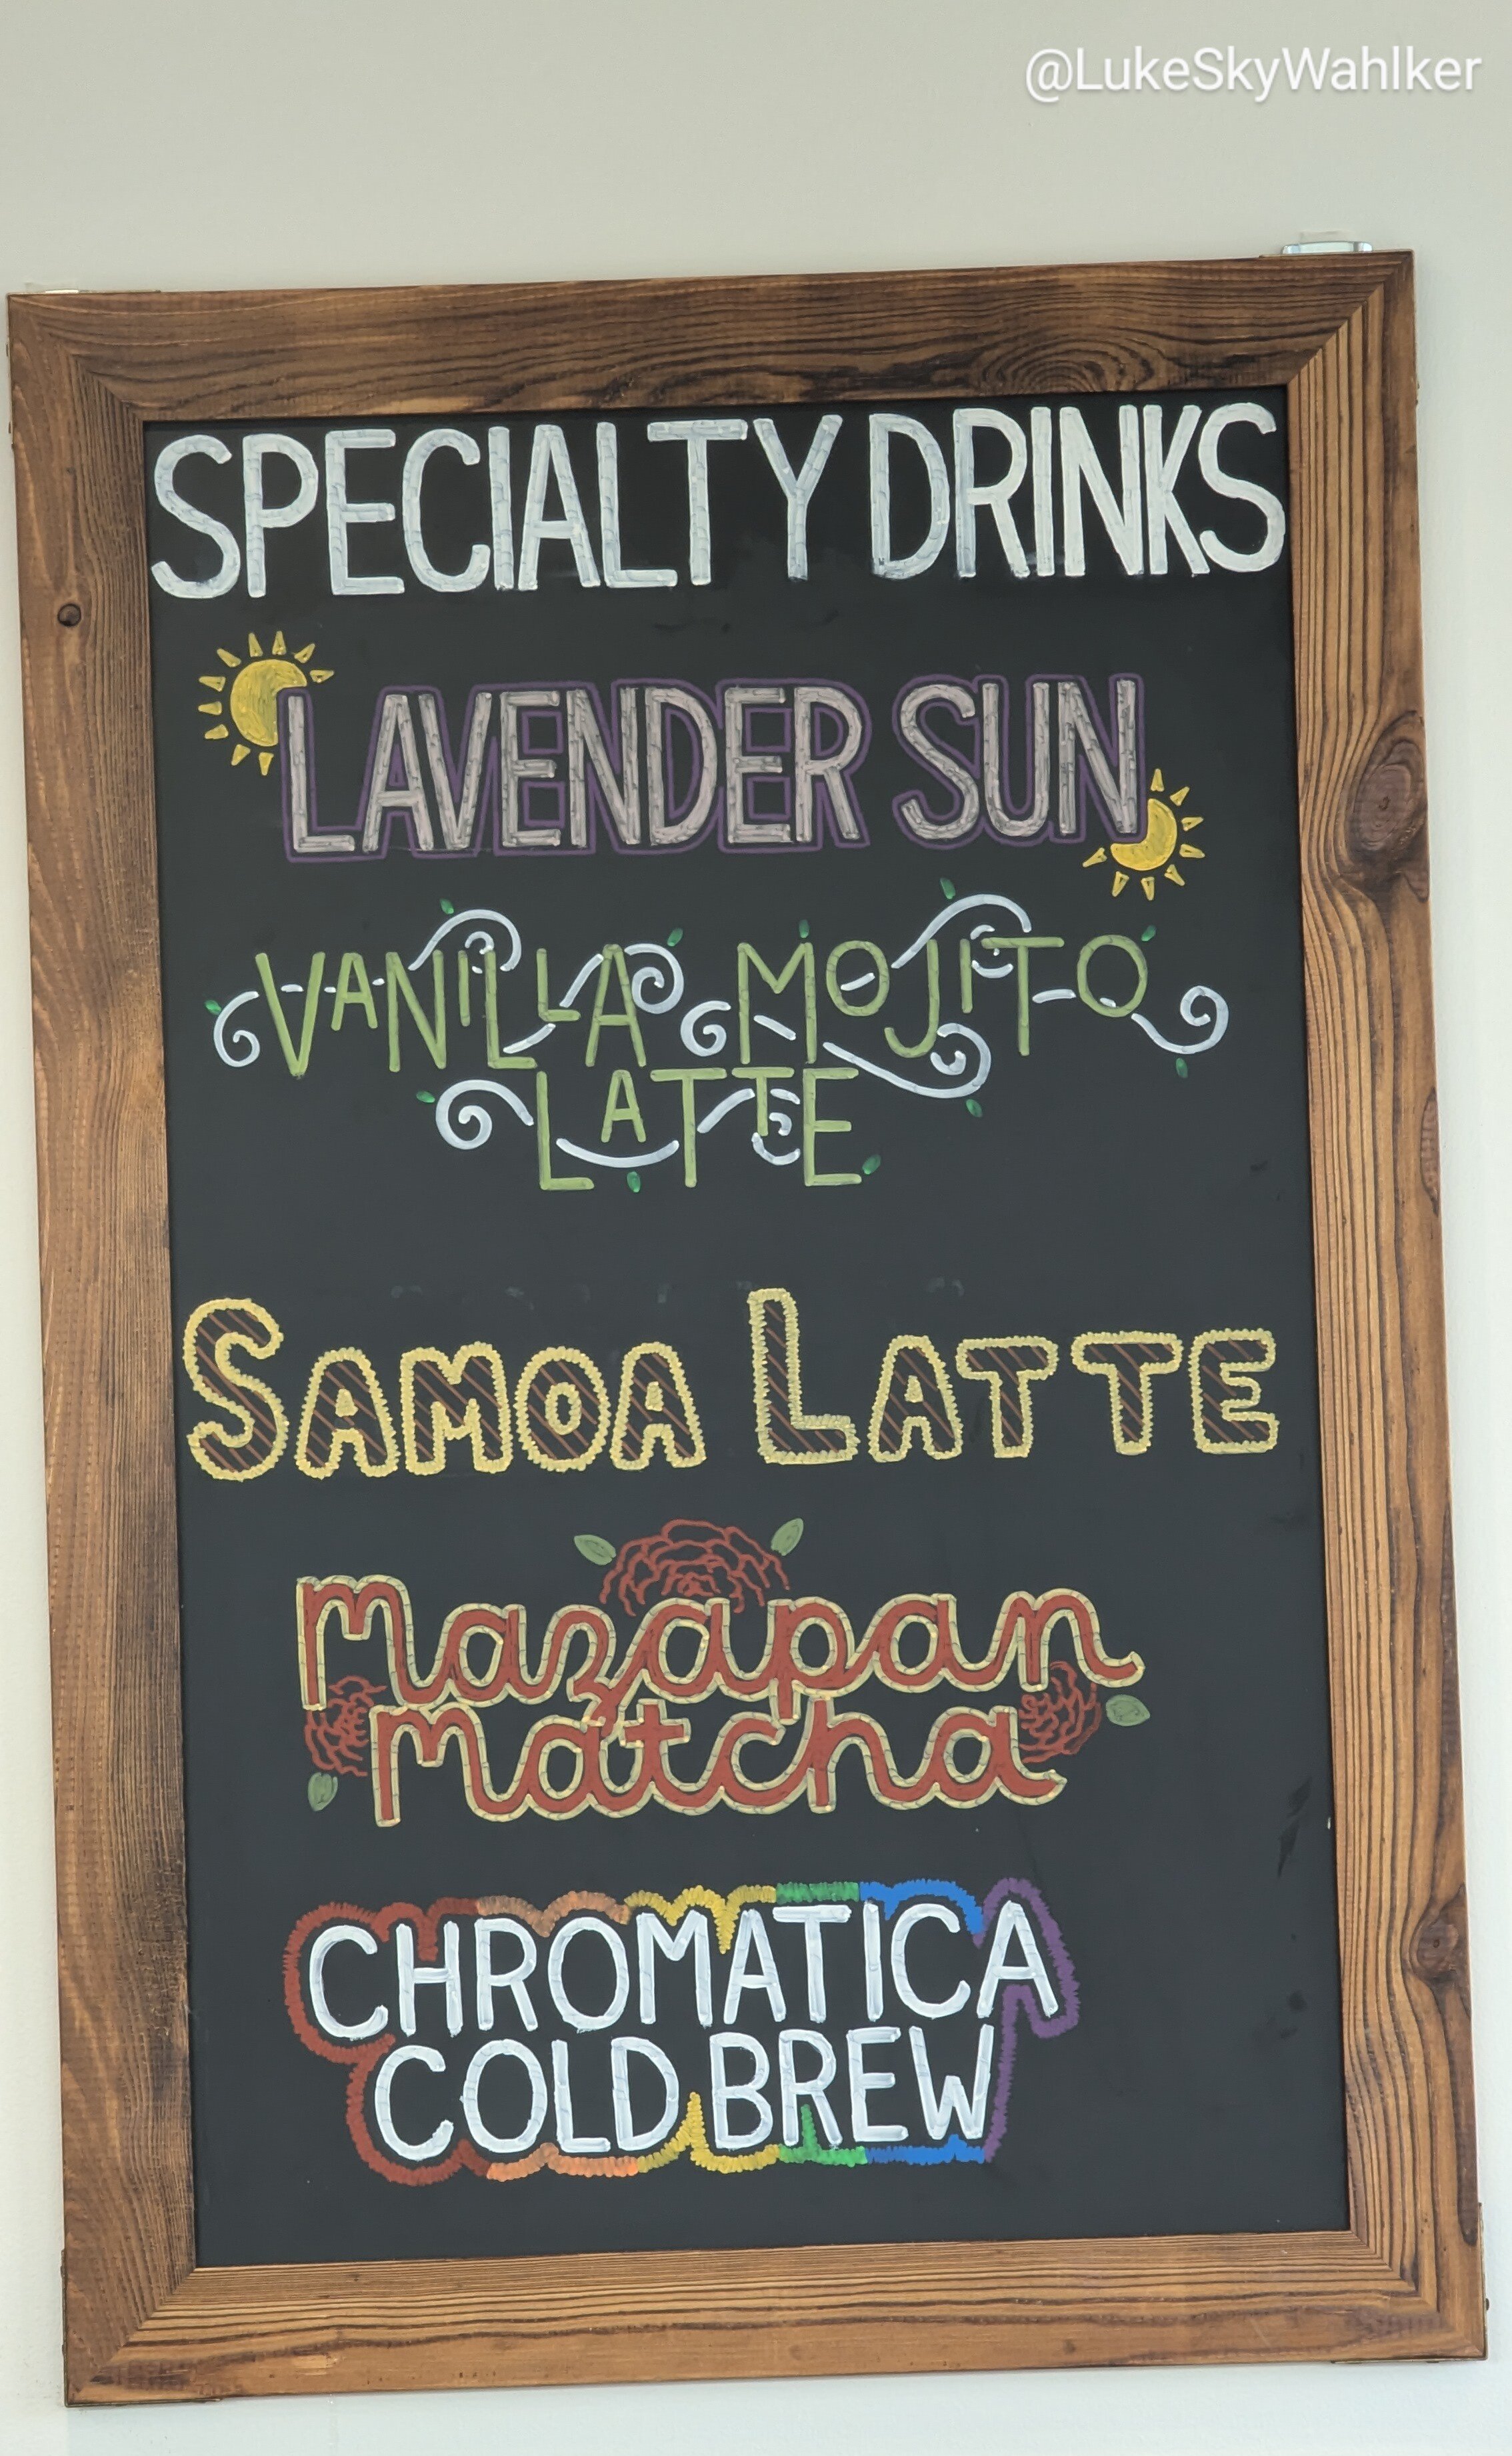 @LukeSkyWahlker
SPECIALTY DRINKS
LAVENDER SUN
VANILLA MOJITO
LATTE
SAMOA LATTE
Mazapan
Matcha
CHROMATICA
COLD BREW